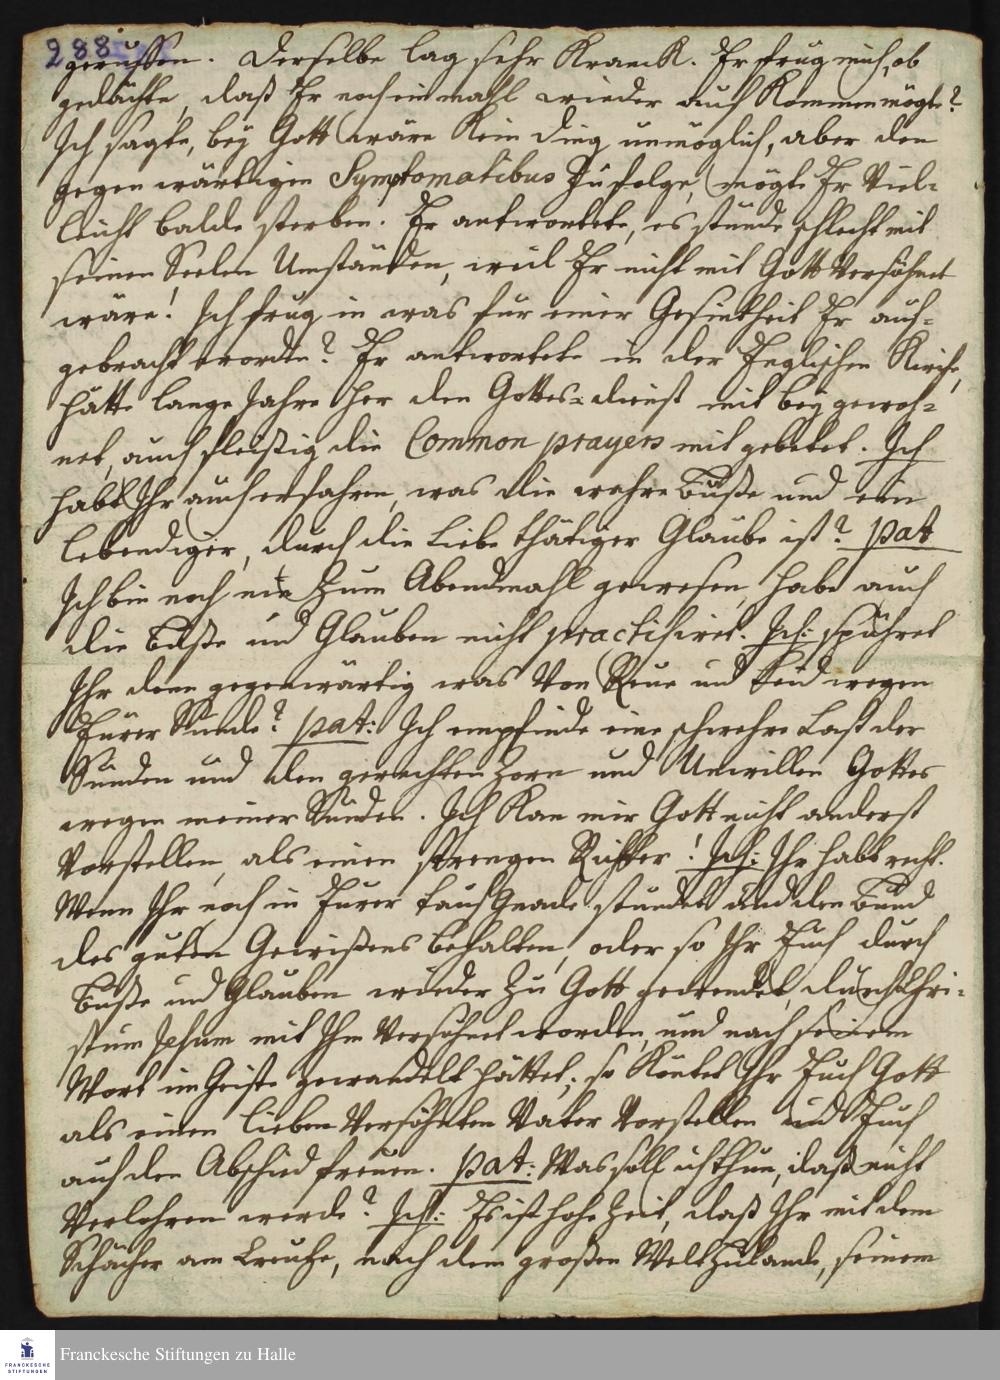 288
geruffen. Derselbe lag sehr Kranck. Er frug mich, ob
gedächte, daß Er noch einmahl wieder auf Kommen mögte?
Ich sagte, bey Gott wäre Kein ding unmöglich, aber den
gegenwärtigen Symptomatibus Zufolge, mögte Er Viel-
leicht balde sterben. Er antwortete, es stünde schlecht mit
seinen Seelen Umständen, weil Er nicht mit Gott Versöhnet
wäre! Ich frug in was für einer Gesintheit Er auf-
gebracht worden? Er antwortete in der Englischen Kirche,
hätte lange Jahre her den Gottes-dienst mit bey gewoh-
net, auch fleißig die Common prayers mit gebetet. Ich
habt Ihr auch erfahren, was die wahre Buße und ein
lebendiger, durch die Liebe thätiger Glaube ist? pat
Ich bin noch nie Zum Abendmahl gewesen, habe auch
die Buße und Glauben nicht practisiret. Ich: spühret
Ihr denn gegenwärtig was Von Reue und Leid wegen
Eurer Sünde? pat: Ich empfinde eine schwehre Last der
Sünden und den gerechten Zorn und Unwillen Gottes
wegen meiner Sünden. Ich Kan mir Gott nicht anderst
Vorstellen, als einen strengen Richter! Ich: Ihr habt recht.
Wenn Ihr noch in Eurer Tauf Gnade stündet und den Bund
des guten Gewißens behalten, oder so Ihr Euch durch
Buße und Glauben wieder Zu Gott gewendet, durch Chri-
stum Jesum mit Ihm Versöhnet worden, und nach seinem
Wort im Geiste gewandelt hättet; so Köntet Ihr Euch Gott
als einen lieben Versöhnten Vater Vorstellen und Euch
auf den Abschied freuen. pat: Was soll ich thun, daß nicht
Verlohren werde? Ich: Es ist hohe Zeit, daß Ihr mit dem
Schächer am Creutze, nach dem großen Welt Heilande, seinem
Franckesche Stiftungen zu Halle
FRANCKESCHE
STIFTUNGEN